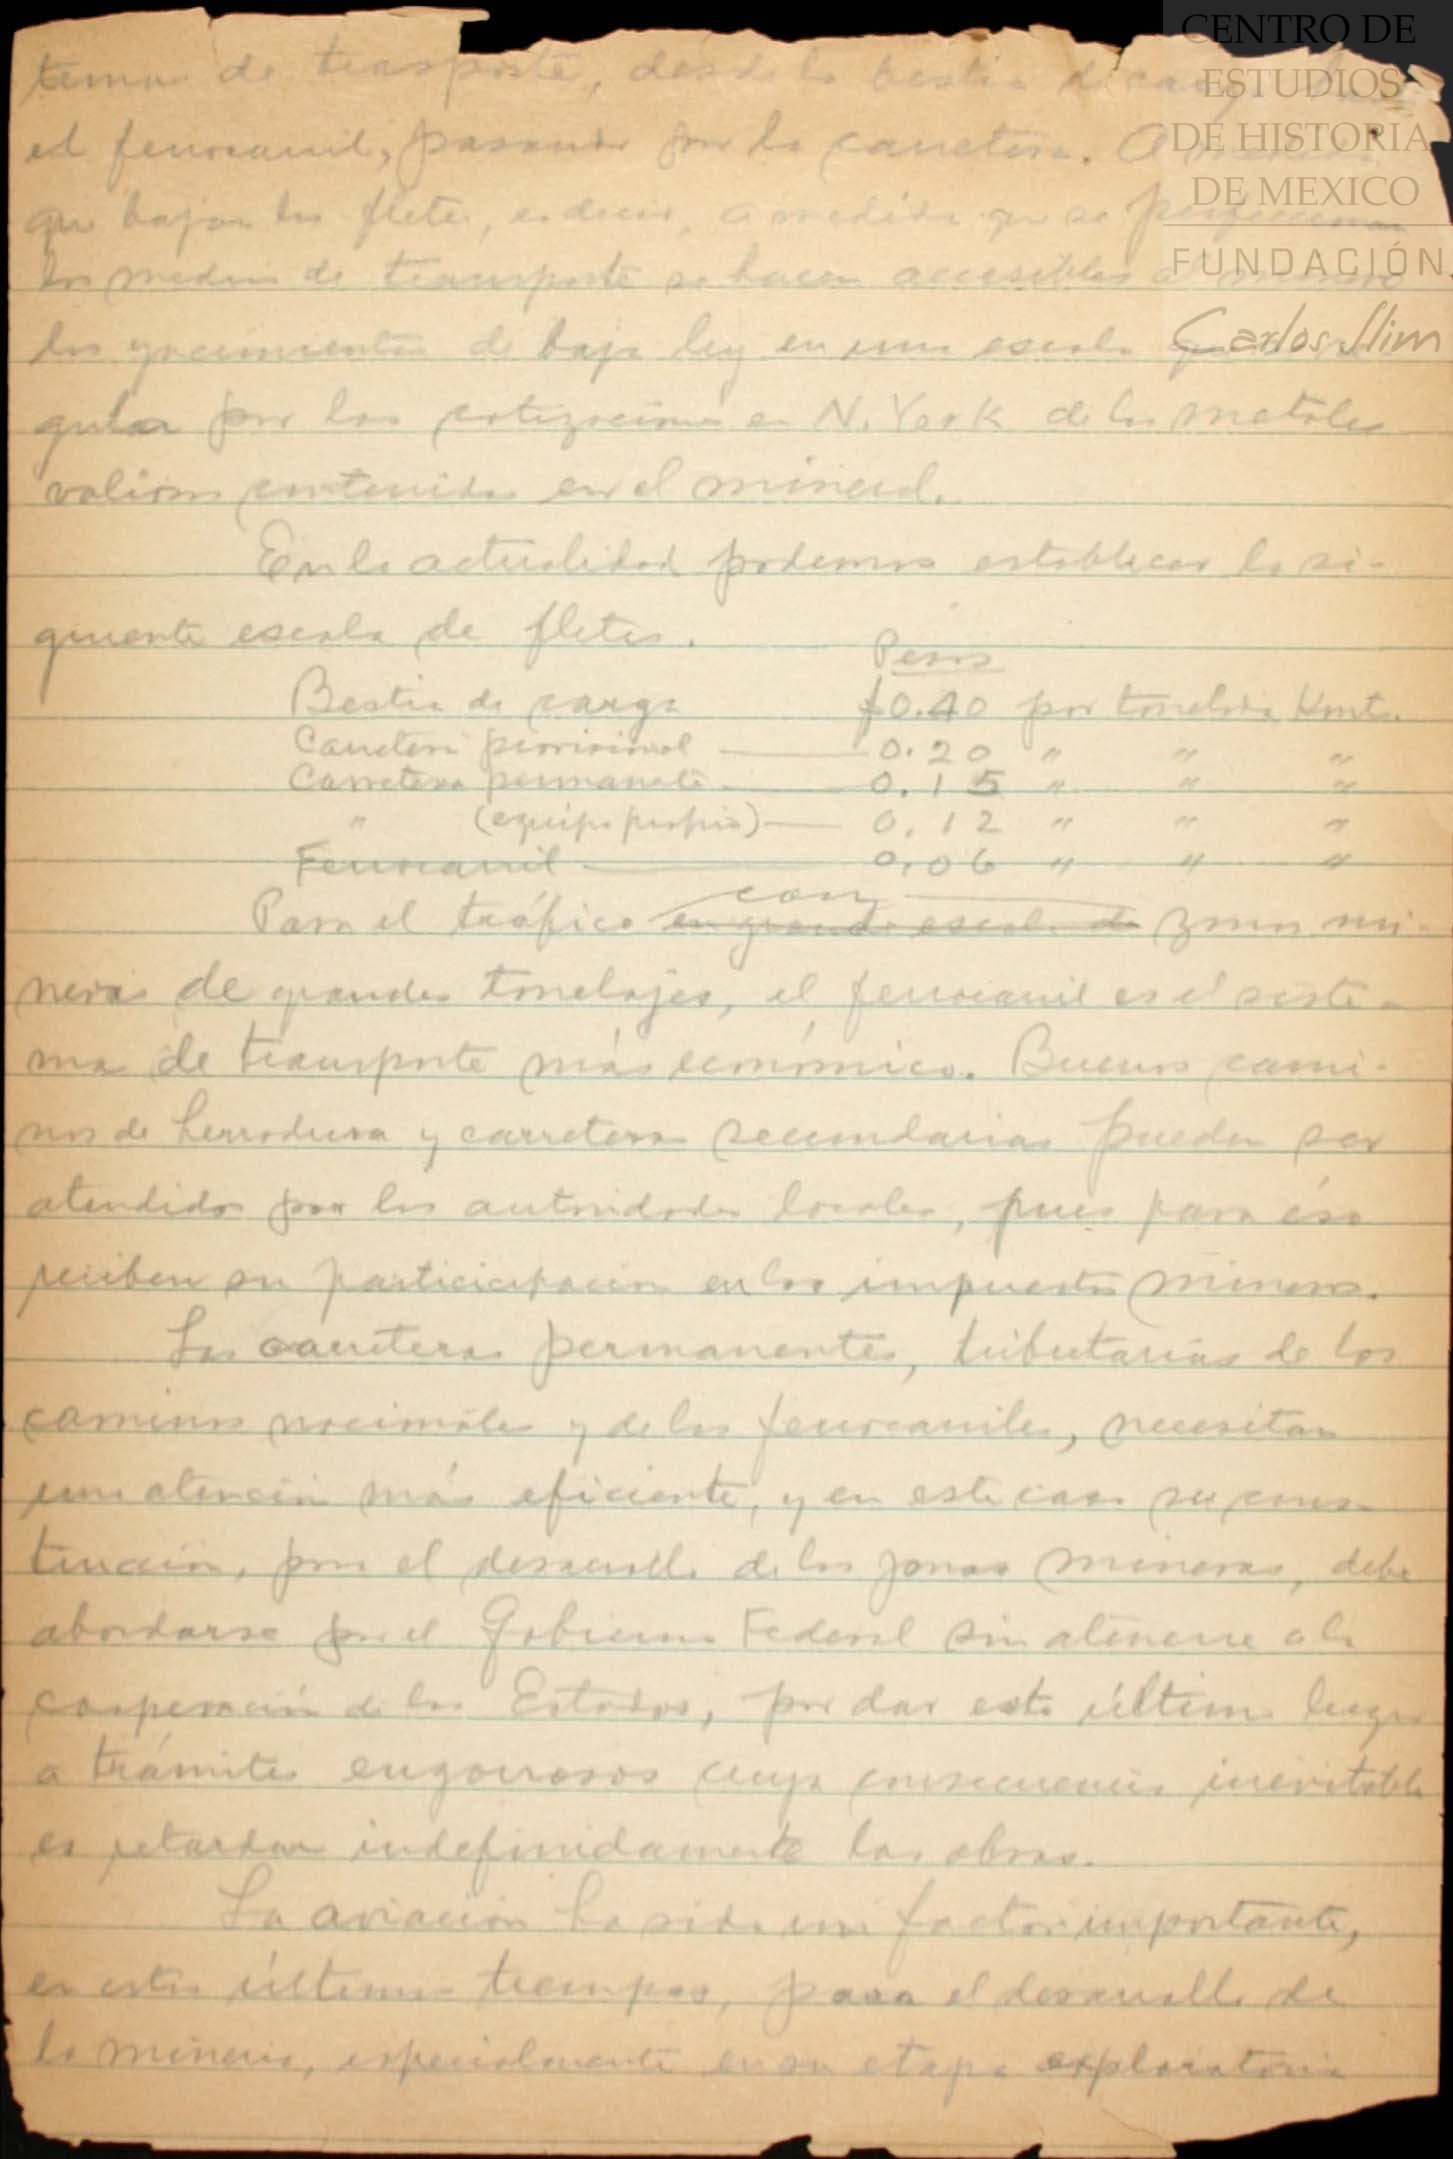 CENTRO DE
ESTUDIOS
DE HISTORIA
DE MEXICO
FUNDACIÓN
Carlos Slim
temas de trasporte, desde la bestia de carga
el ferrocarril, pasando por la carretera. A medida
que bajan los fletes, es decir, a medida que se perfeccionan
los medios de transporte se hacen accesibles al minero
los yacimientos de baja ley en una escala
gular por las cotizaciones en N. York de los metales
valiosos contenidos en el mineral.
En la actualidad podemos establecer la si-
guiente escala de fletes.
Pesos
Bestia de carga $0.40 por tonelada Kmt.
Carretera provisional — 0.20 " " "
Carretera permanente — 0.15 " " "
" (equipo propio) — 0.12 " " "
Ferrocarril — 0.06 " " "
con
Para el tráfico en grande escala de zonas mi-
neras de grandes tonelajes, el ferrocarril es el siste-
ma de transporte más económico. Buenos cami-
nos de herradura y carreteras secundarias pueden ser
atendidos por las autoridades locales, pues para éso
reciben su participación en los impuestos mineros.
Las carreteras permanentes, tributarias de los
caminos nacionales y de los ferrocarriles, necesitan
una atención más eficiente, y en este caso su cons-
trucción, para el desarrollo de las zonas mineras, debe
abordarse por el Gobierno Federal sin atenerse a la
cooperación de los Estados, por dar esto último lugar
a trámites engorrosos cuya consecuencia inevitable
es retardar indefinidamente las obras.
La aviación ha sido un factor importante,
en estos últimos tiempos, para el desarrollo de
la minería, especialmente en su etapa exploratoria